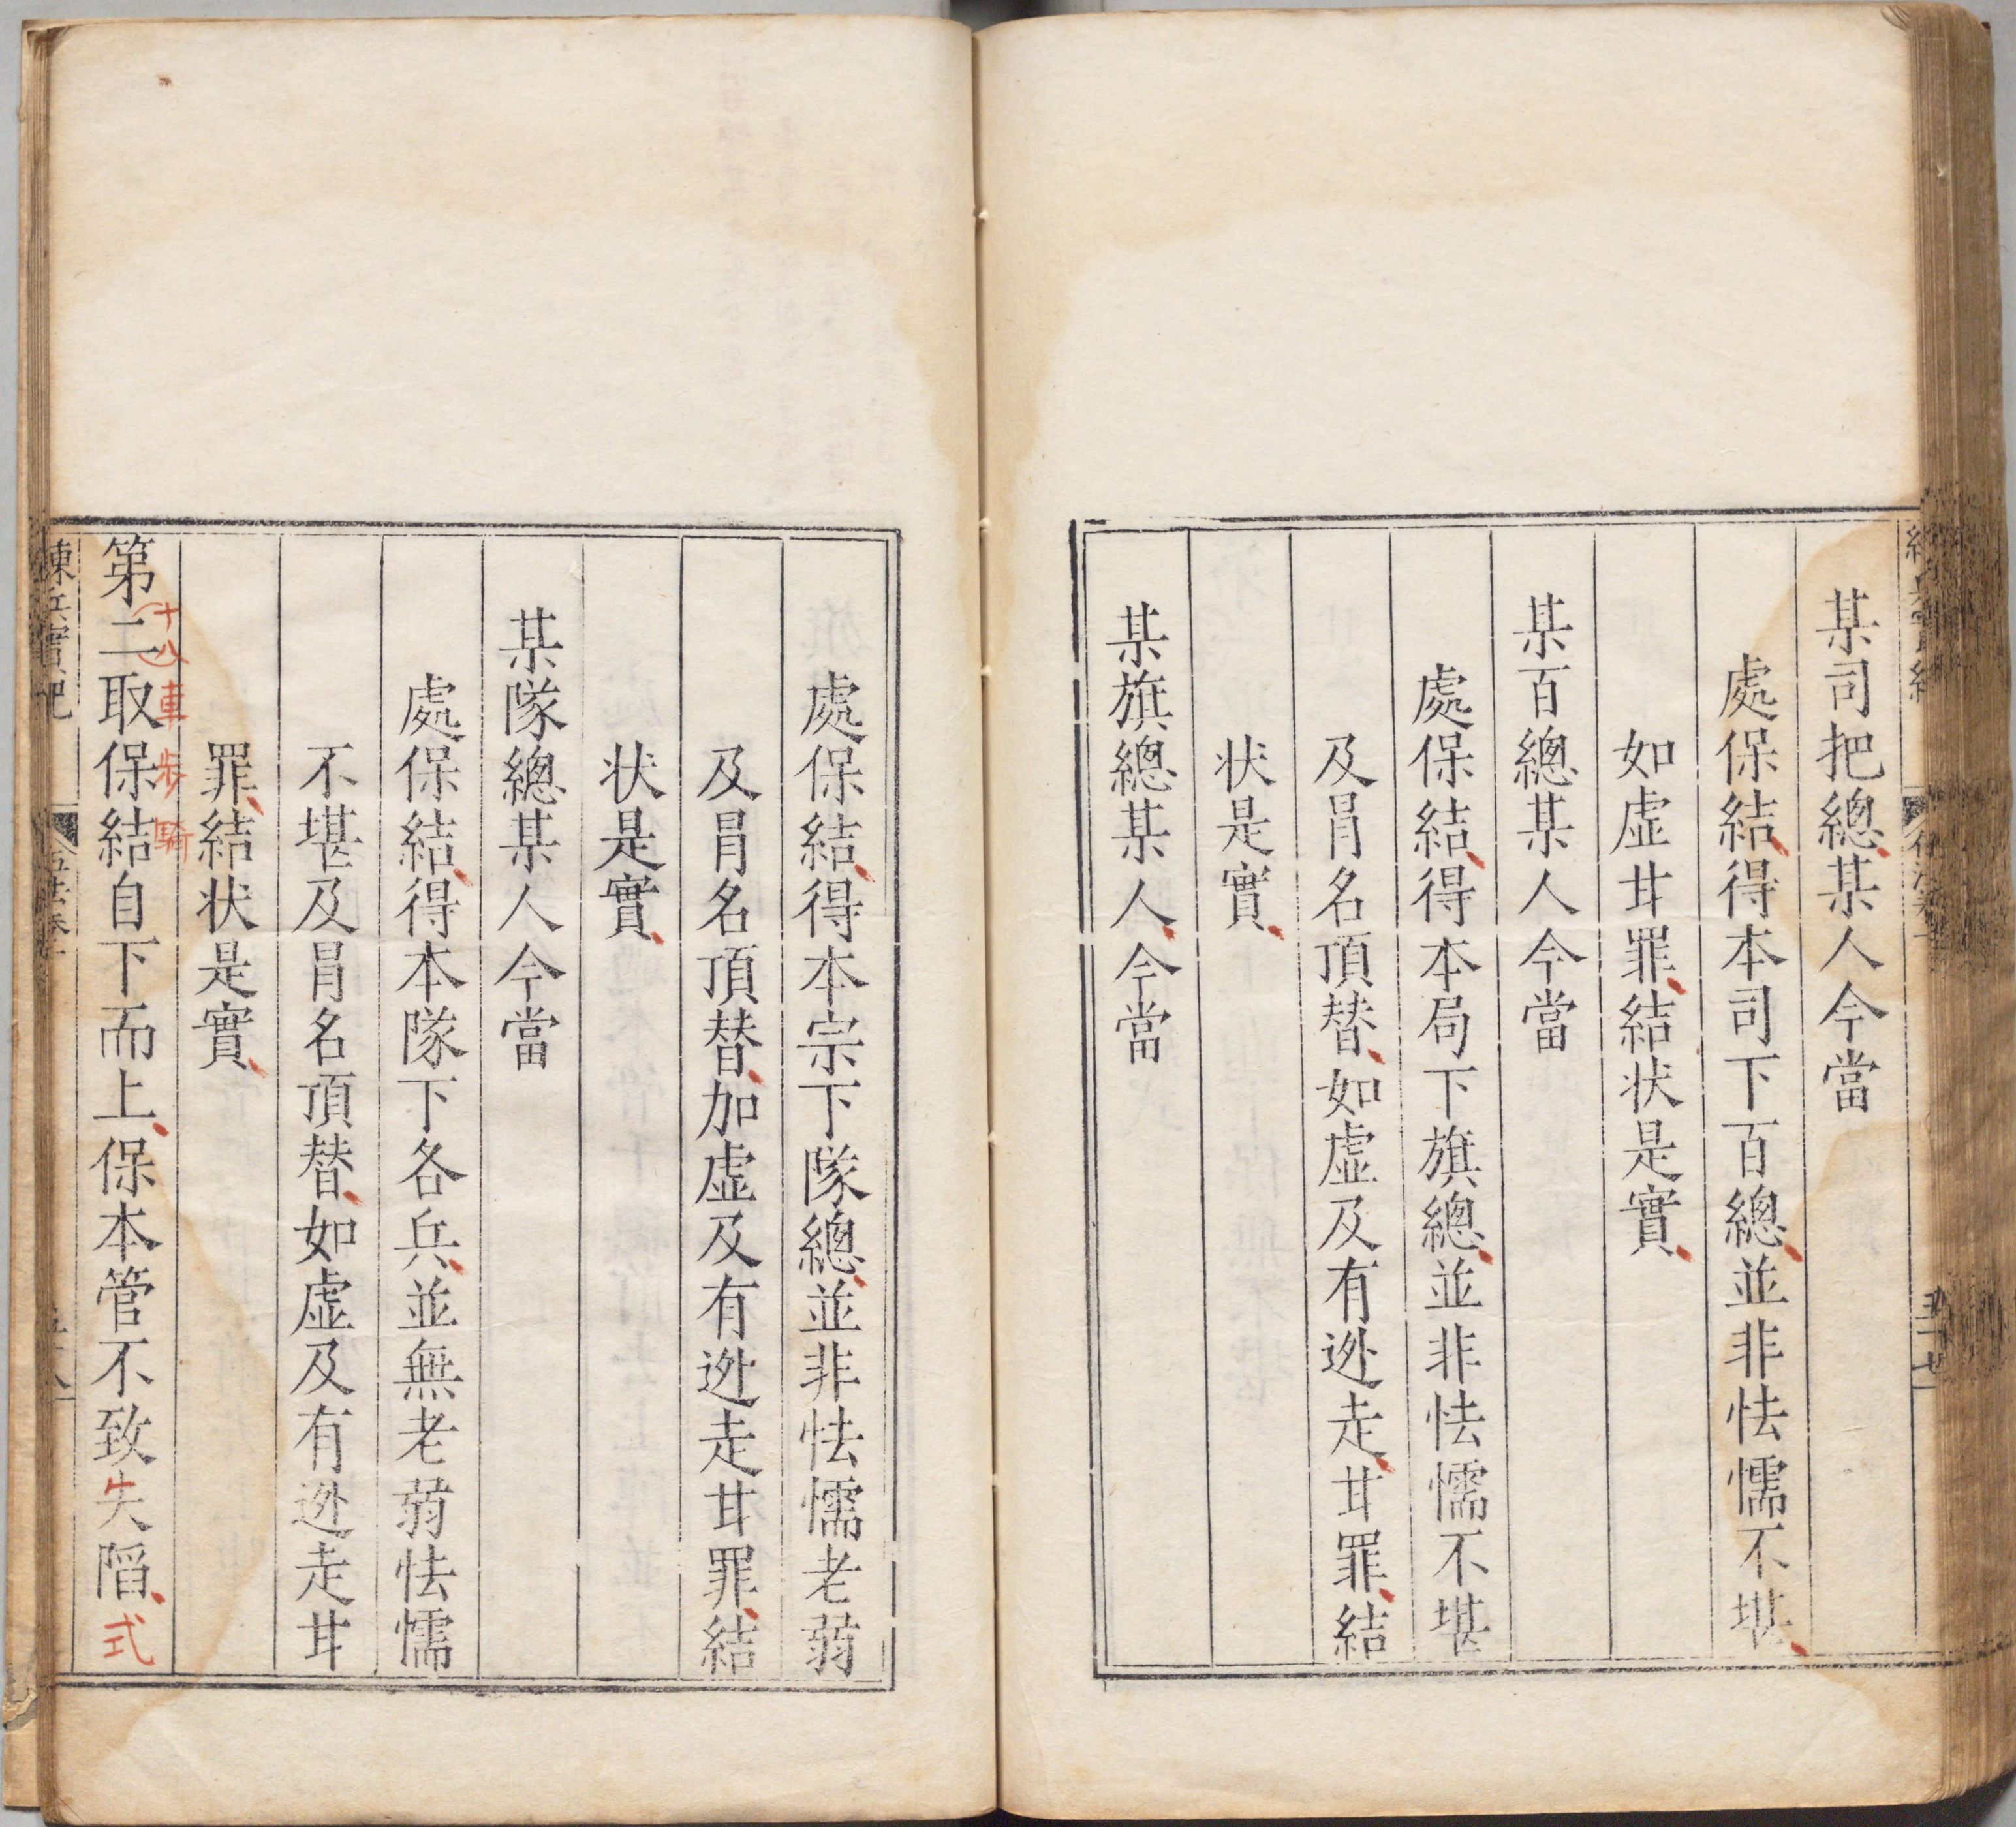 某司把總某人今當
處保結得本司下百總並非怯懦不堪
如虛甘罪結状是實
某百總某人今當
處保結得本局下旗總並非怯懦不堪
及冐名頂替如虛及有迯走甘罪結
状是實
某旗總某人今當
處保結得本宗下隊總並非怯懦老弱
及冐名頂替加虛及有迯走甘罪結
状是實
某隊總某人今當
處保結得本隊下各兵並無老弱怯懦
不堪及冐名頂替如虛及有迯走甘
罪結状是實
十八車步騎
第二取保結自下而上保本管不致失陷式